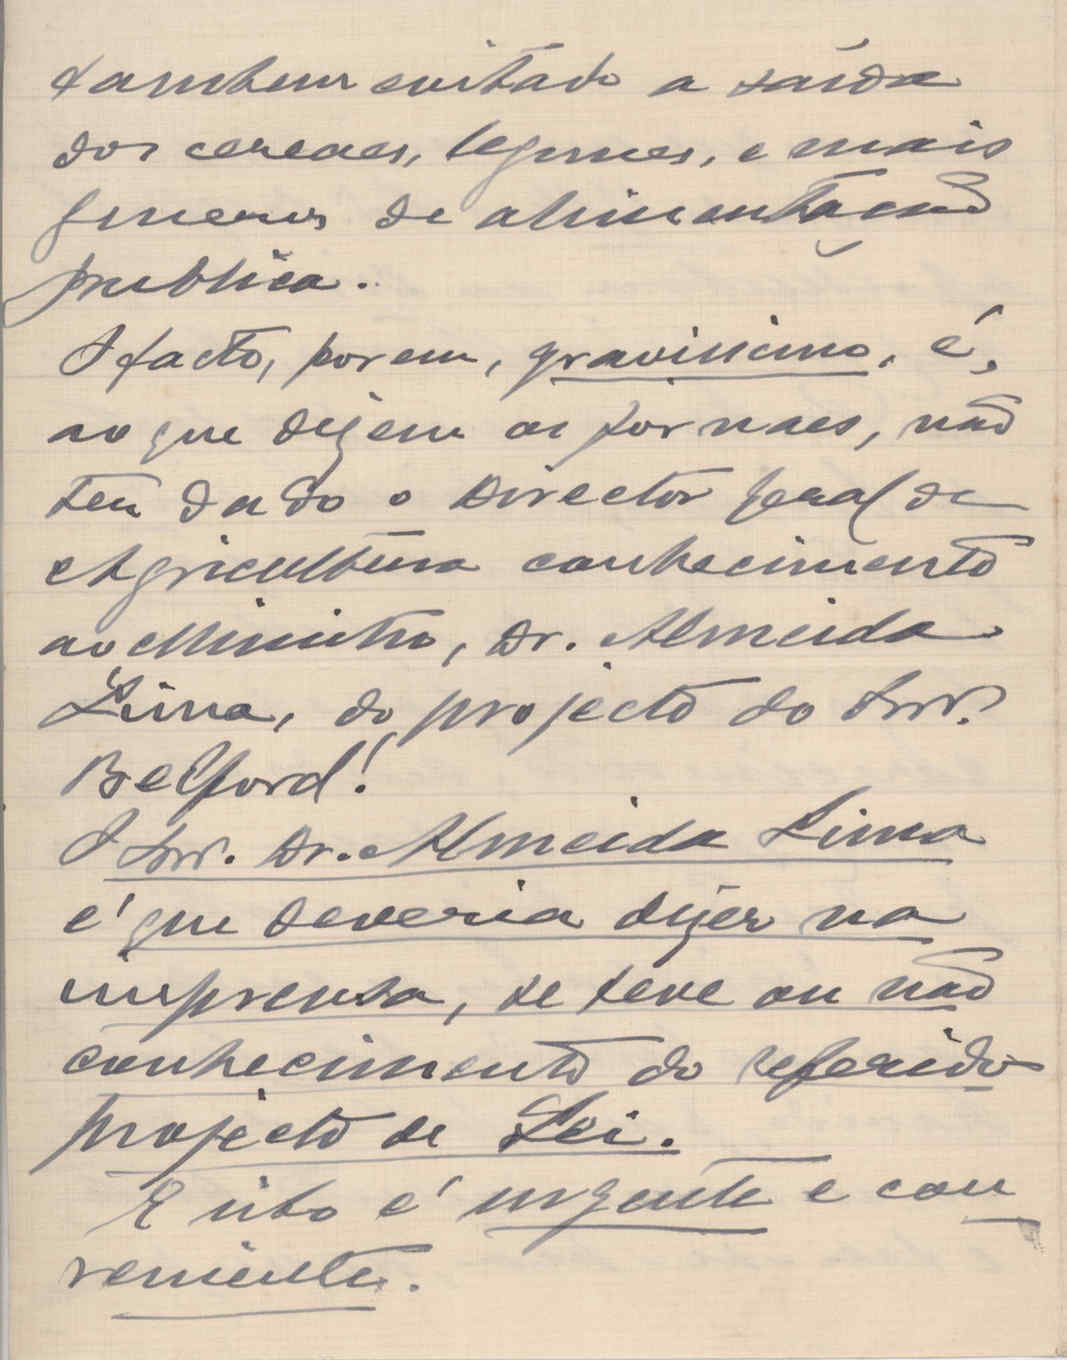 tambem evitado a saída
dos cereaes, legumes, e mais
generos de alimentação
publica.
O facto, porem, gravissimo, é,
ao que dizem os jornaes, não
ter dado o Director geral de
Agricultura conhecimento
ao Ministro, Dr. Almeida
Lima, do projecto do Snr.
Belford!
O Snr. Dr. Almeida Lima
é que deveria dizer na
imprensa, se teve ou não
conhecimento do referido
projecto de Lei.
E isto é urgente e con
veniente.